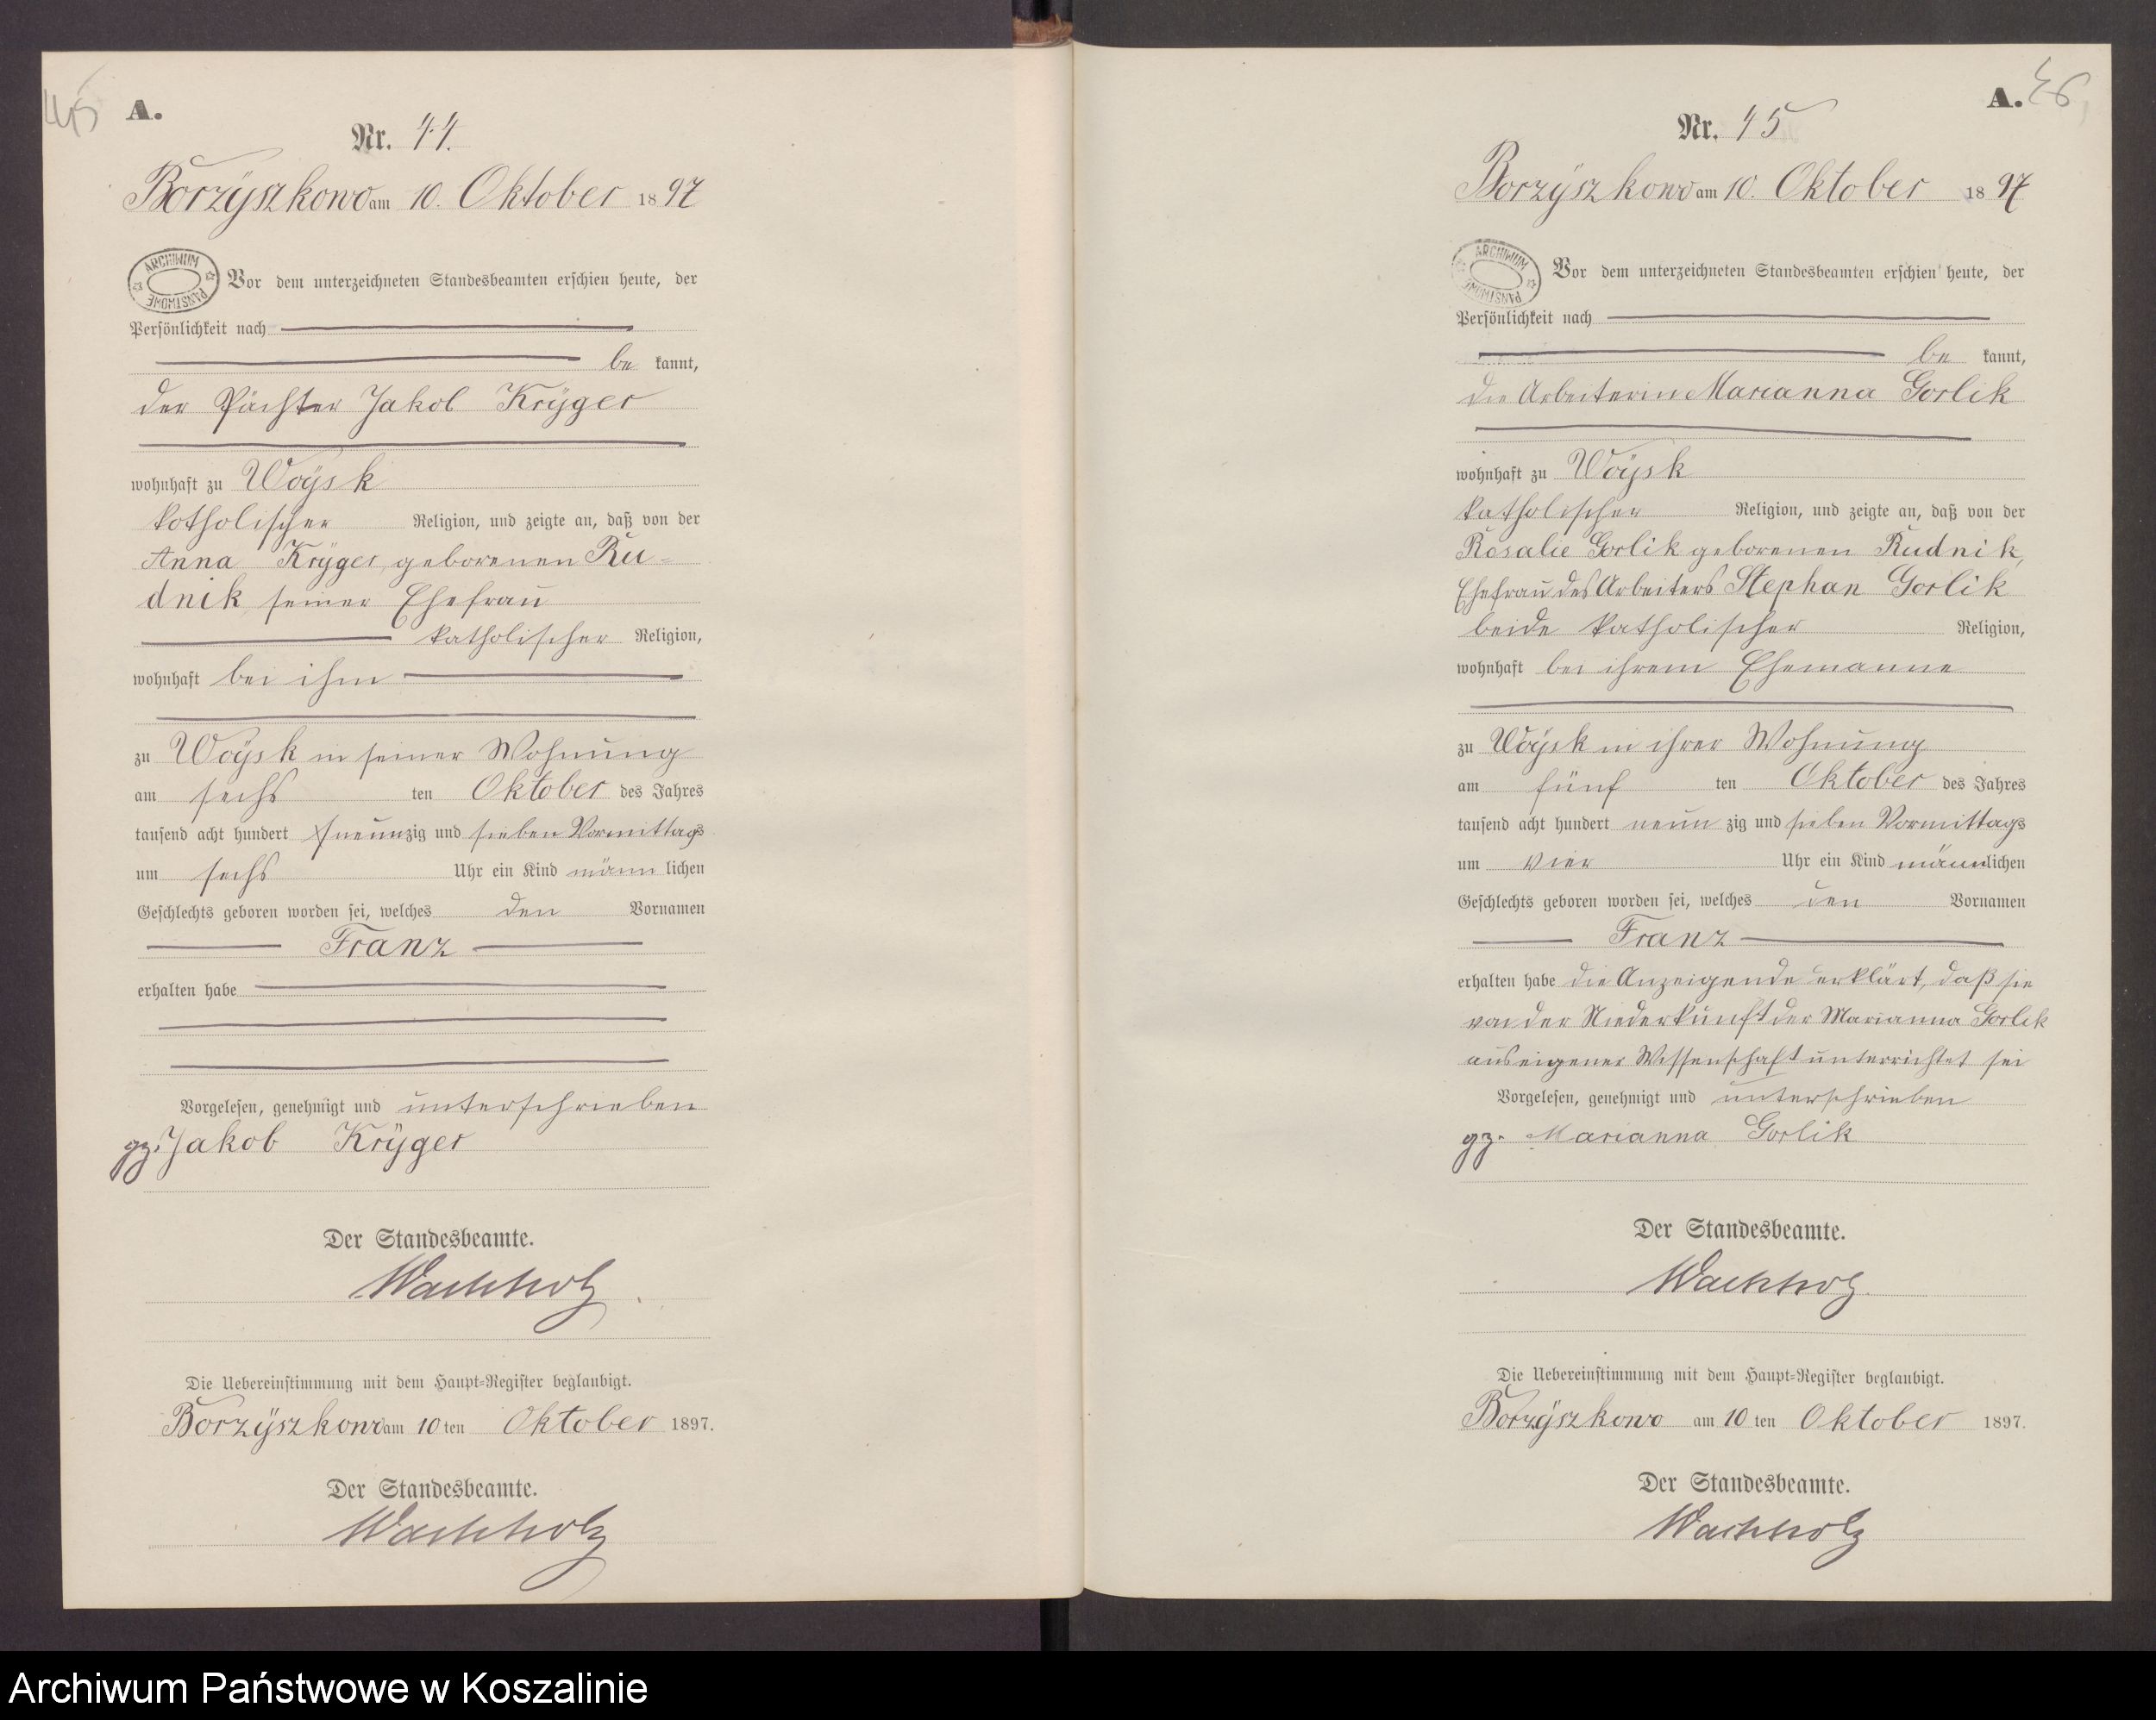 45
A.
Nr. 44.
Borzÿszkowo am 10. Oktober 1897
ARCHIWUM PAŃSTWOWE
Vor dem unterzeichneten Standesbeamten erschien heute, der
Persönlichkeit nach
be kannt,
der Pächter Jakob Krÿger
wohnhaft zu Woÿsk
katholischer Religion, und zeigte an, daß von der
Anna Krÿger, geborenen Ru-
dnik seiner Ehefrau
katholischer Religion,
wohnhaft bei ihm
zu Woÿsk in seiner Wohnung
am sechs ten Oktober des Jahres
tausend acht hundert neunzig und sieben Vormittags
um sechs Uhr ein Kind männlichen
Geschlechts geboren worden sei, welches den Vornamen
Franz
erhalten habe
Vorgelesen, genehmigt und unterschrieben
gz. Jakob Krÿger
Der Standesbeamte.
Wachholz
Die Uebereinstimmung mit dem Haupt-Register beglaubigt.
Borzÿszkowo am 10 ten Oktober 1897.
Der Standesbeamte.
Wachholz
A. 46
Nr. 45
Borzÿszkowo am 10. Oktober 1897
ARCHIWUM PAŃSTWOWE
Vor dem unterzeichneten Standesbeamten erschien heute, der
Persönlichkeit nach
be kannt,
die Arbeiterin Marianna Gorlik
wohnhaft zu Woÿsk
katholischer Religion, und zeigte an, daß von der
Rosalie Gorlik geborenen Rudnik,
Ehefrau des Arbeiters Stephan Gorlik
beide katholischer Religion,
wohnhaft bei ihrem Ehemanne
zu Woÿsk in ihrer Wohnung
am fünf ten Oktober des Jahres
tausend acht hundert neun zig und sieben Vormittags
um vier Uhr ein Kind männlichen
Geschlechts geboren worden sei, welches den Vornamen
Franz
erhalten habe die Anzeigende erklärt, daß sie
von der Niederkunft der Marianna Gorlik
aus eigener Wissenschaft unterrichtet sei
Vorgelesen, genehmigt und unterschrieben
gz. Marianna Gorlik
Der Standesbeamte.
Wachholz.
Die Uebereinstimmung mit dem Haupt-Register beglaubigt.
Borzÿszkowo am 10 ten Oktober 1897.
Der Standesbeamte.
Wachholz
Archiwum Państwowe w Koszalinie